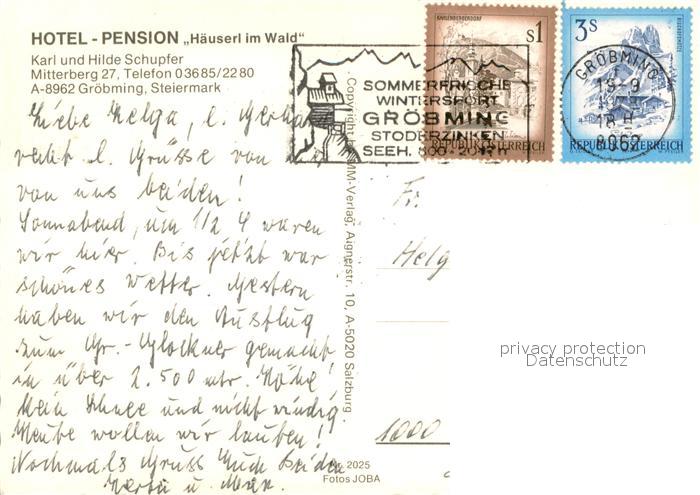 HOTEL - PENSION „Häuserl im Wald"
Karl und Hilde Schupfer
Mitterberg 27, Telefon 03685/2280
A-8962 Gröbming, Steiermark
KAHLENBERGERDORF
s1
REPUBLIK ÖSTERREICH
3s
BISCHOFSMÜTZE
REPUBLIK ÖSTERREICH
SOMMERFRISCHE
WINTERSPORT
GRÖBMING
STODERZINKEN
SEEH. 800-20
GRÖBMING
8962
Liebe Helga, l.
recht l. Grüsse von
von uns beiden!
Sonnabend, um 1/2 4 waren
wir hier. Bis jetzt war
schönes Wetter. Gestern
haben wir den Ausflug
zum Gr.-Glockner gemacht
in über 2.500 mtr. Höhe
Kein Schnee und nicht windig.
Heute wollen wir laufen!
Nochmals Gruss Euch beiden
u. Max.
Copyright MM-Verlag, Aignerstr. 10, A-5020 Salzburg
2025
Fotos JOBA
Fr.
Helg
1000
privacy protection
Datenschutz